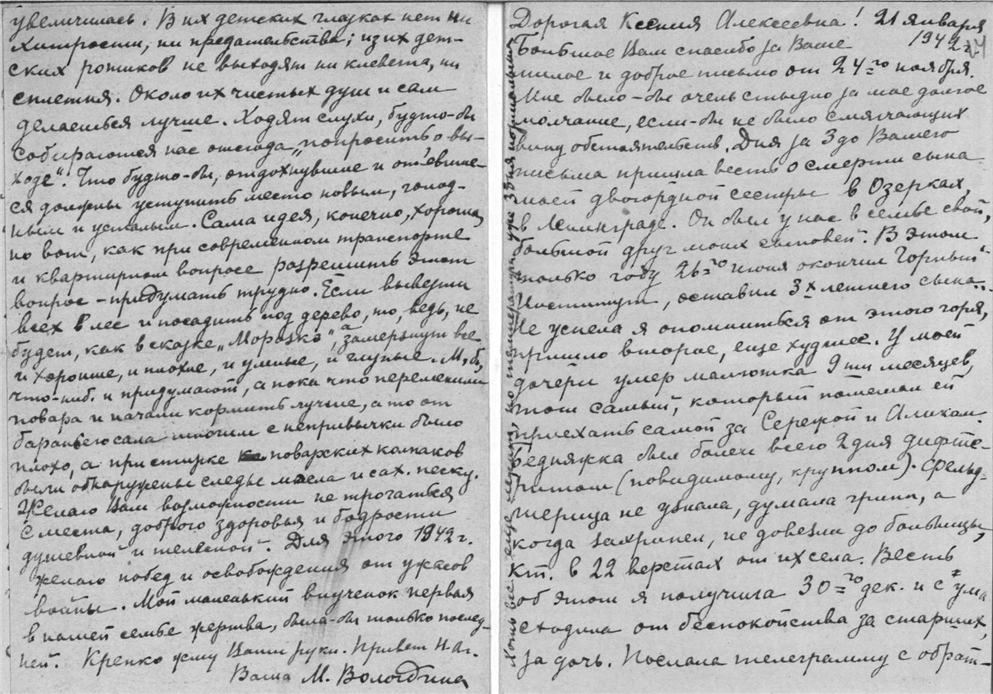 увеличилась. В их детских глазках нет ни
хитрости, ни предательства; из их дет-
ских ротиков не выходят ни клевета, ни
сплетня. Около их чистых душ и сам
делаешься лучше. Ходят слухи, будто-бы
собираются нас отсюда „попросить о вы-
ходе". Что будто-бы, отдохнувшие и отъевшие-
ся должны уступить место новым, голод-
ным и усталым. Сама идея, конечно, хороша,
но вот, как при современном транспорте
и квартирном вопросе разрешить этот
вопрос – придумать трудно. Если вывезти
всех в лес и посадить под дерево, то, ведь, не
будет, как в сказке „Морозко", а замерзнут все
и хорошие, и плохие, и умные, и глупые. М. б,
что-ниб. и придумают, а пока что переменили
повара и начали кормить лучше, а то от
бараньего сала многим с непривычки было
плохо, а при стирке поварских колпаков
были обнаружены следы масла и сах. песку.
Желаю Вам возможности не трогаться
с места, доброго здоровья и бодрости
душевной и телесной. Для этого 1942 г.
желаю побед и освобождения от ужасов
войны. Мой маленький внученок первая
в нашей семье жертва, была-бы только послед-
ней. Крепко жму Ваши руки. Привет Н. Аг.
Ваша М. Вологдина
Дорогая Ксения Алексеевна! 21 января
1942 г.
Большое Вам спасибо за Ваше
милое и доброе письмо от 24-го ноября.
Мне было-бы очень стыдно за мое долгое
молчание, если-бы не было смягчающих
вину обстоятельств. Дня за 3 до Вашего
письма пришла весть о смерти сына
моей двоюродной сестры в Озерках,
в Ленинграде. Он был у нас в семье свой,
большой друг моих сыновей. В этом
только году 26-го июня окончил Горный
Институт, оставил 3х летнего сына.
Не успела я опомниться от этого горя,
пришло второе, еще худшее. У моей
дочери умер малютка 9ти месяцев,
тот самый, который помешал ей
приехать самой за Сережой и Аликом.
Бедняжка был болен всего 2 дня дифте-
ритом (повидимому, крупом). Фельд-
шерица не узнала, думала грипп, а
когда захрипел, не довезли до больницы,
кт. в 22 верстах от их села. Весть
об этом я получила 30-го дек. и с ума
сходила от беспокойства за старших,
за дочь. Послала телеграмму с обрат-
Хоть все еще мерзну, но температура уже 3 дня нормальная